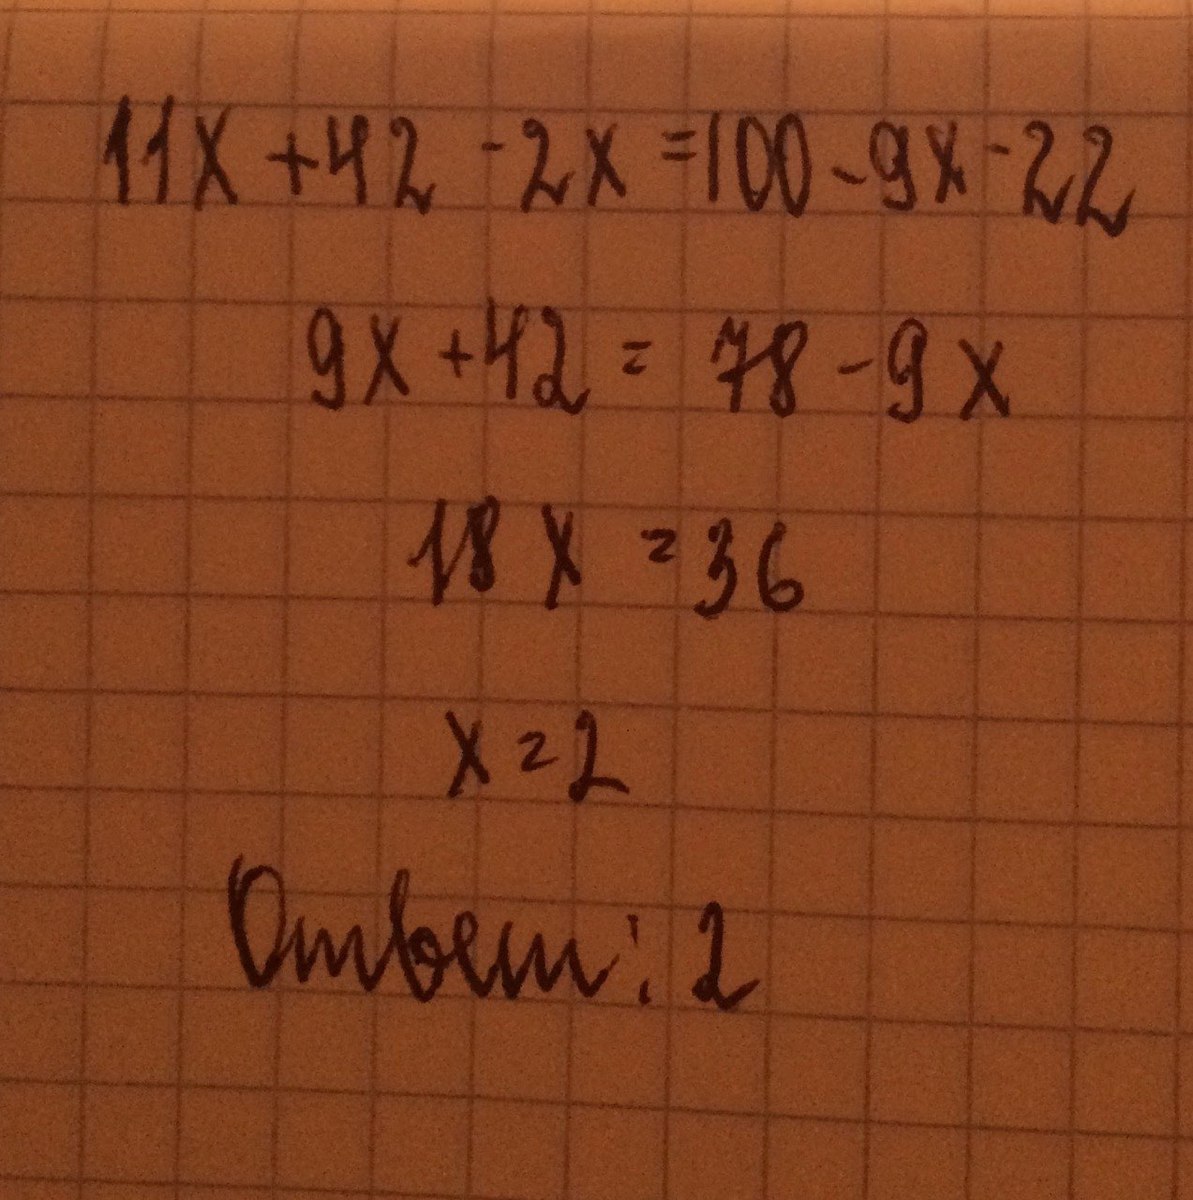 11x + 42 - 2x = 100 - 9x - 22
9x + 42 = 78 - 9x
18x = 36
x = 2
Ответ: 2